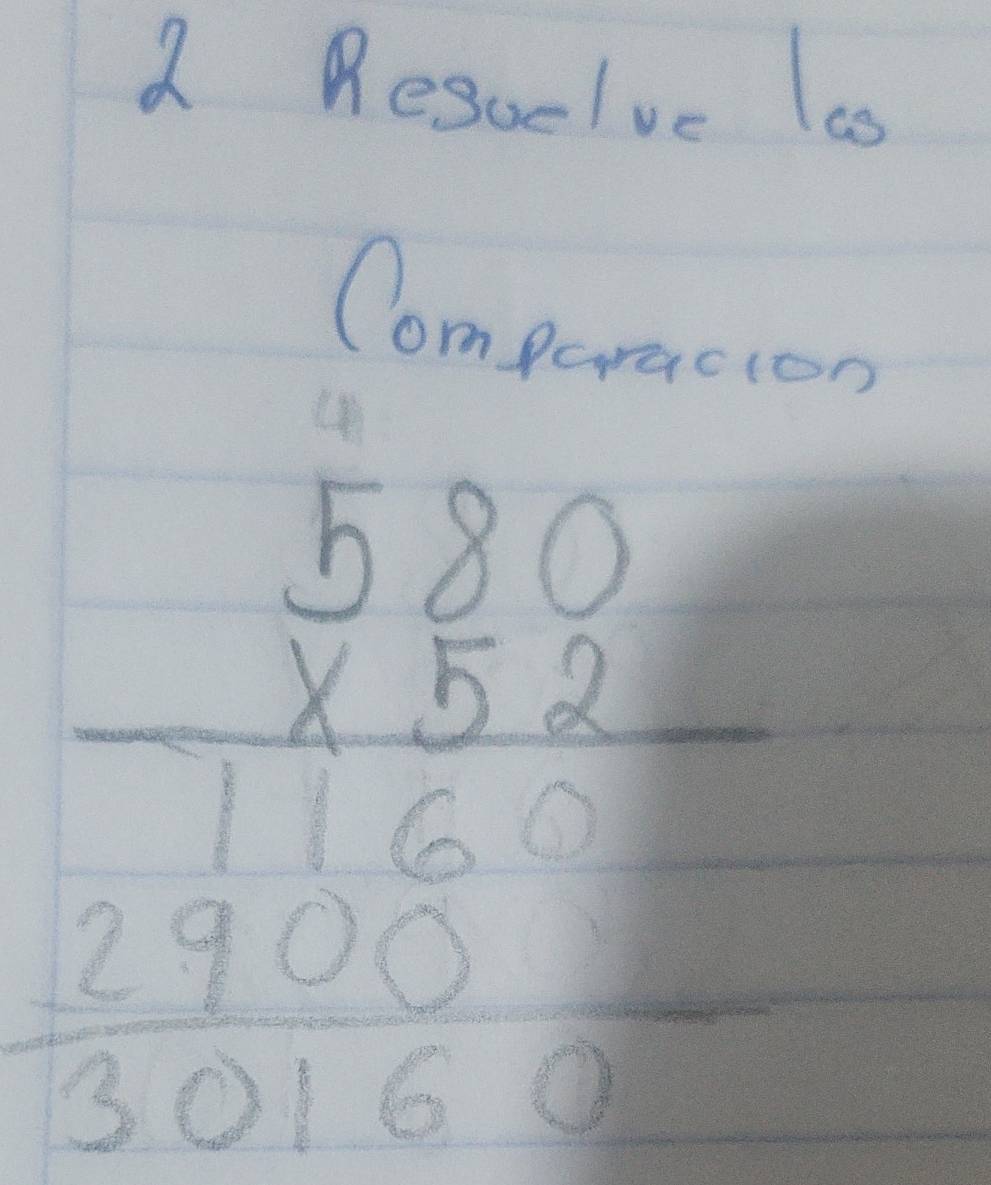 2 Resuelve las
Comparacion
4
580
x 52
1160
2900
30160